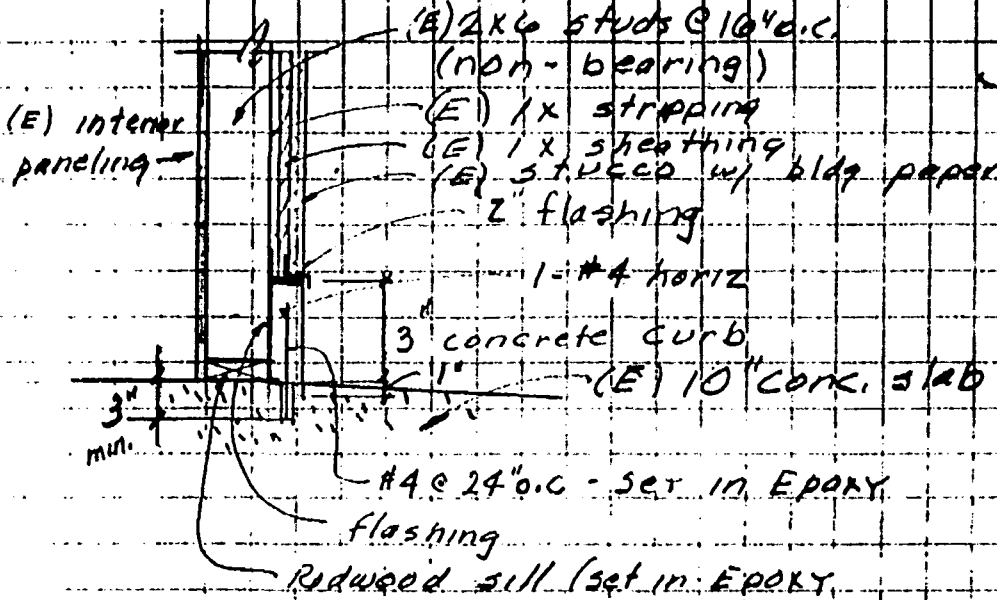 (E) 2x6 studs @ 16" o.c.
(non-bearing)
(E) interior
paneling
(E) 1x stripping
(E) 1x sheathing
(E) stucco w/ bldg paper
2" flashing
1-#4 horiz
3" concrete curb
1"
(E) 10" conc. slab
3"
min.
#4 @ 24" o.c - set in Epoxy
flashing
Redwood sill (set in Epoxy